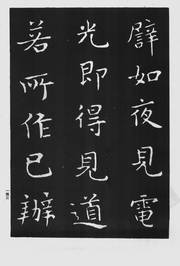 譬如夜見電
光即得見道
若所作已辦